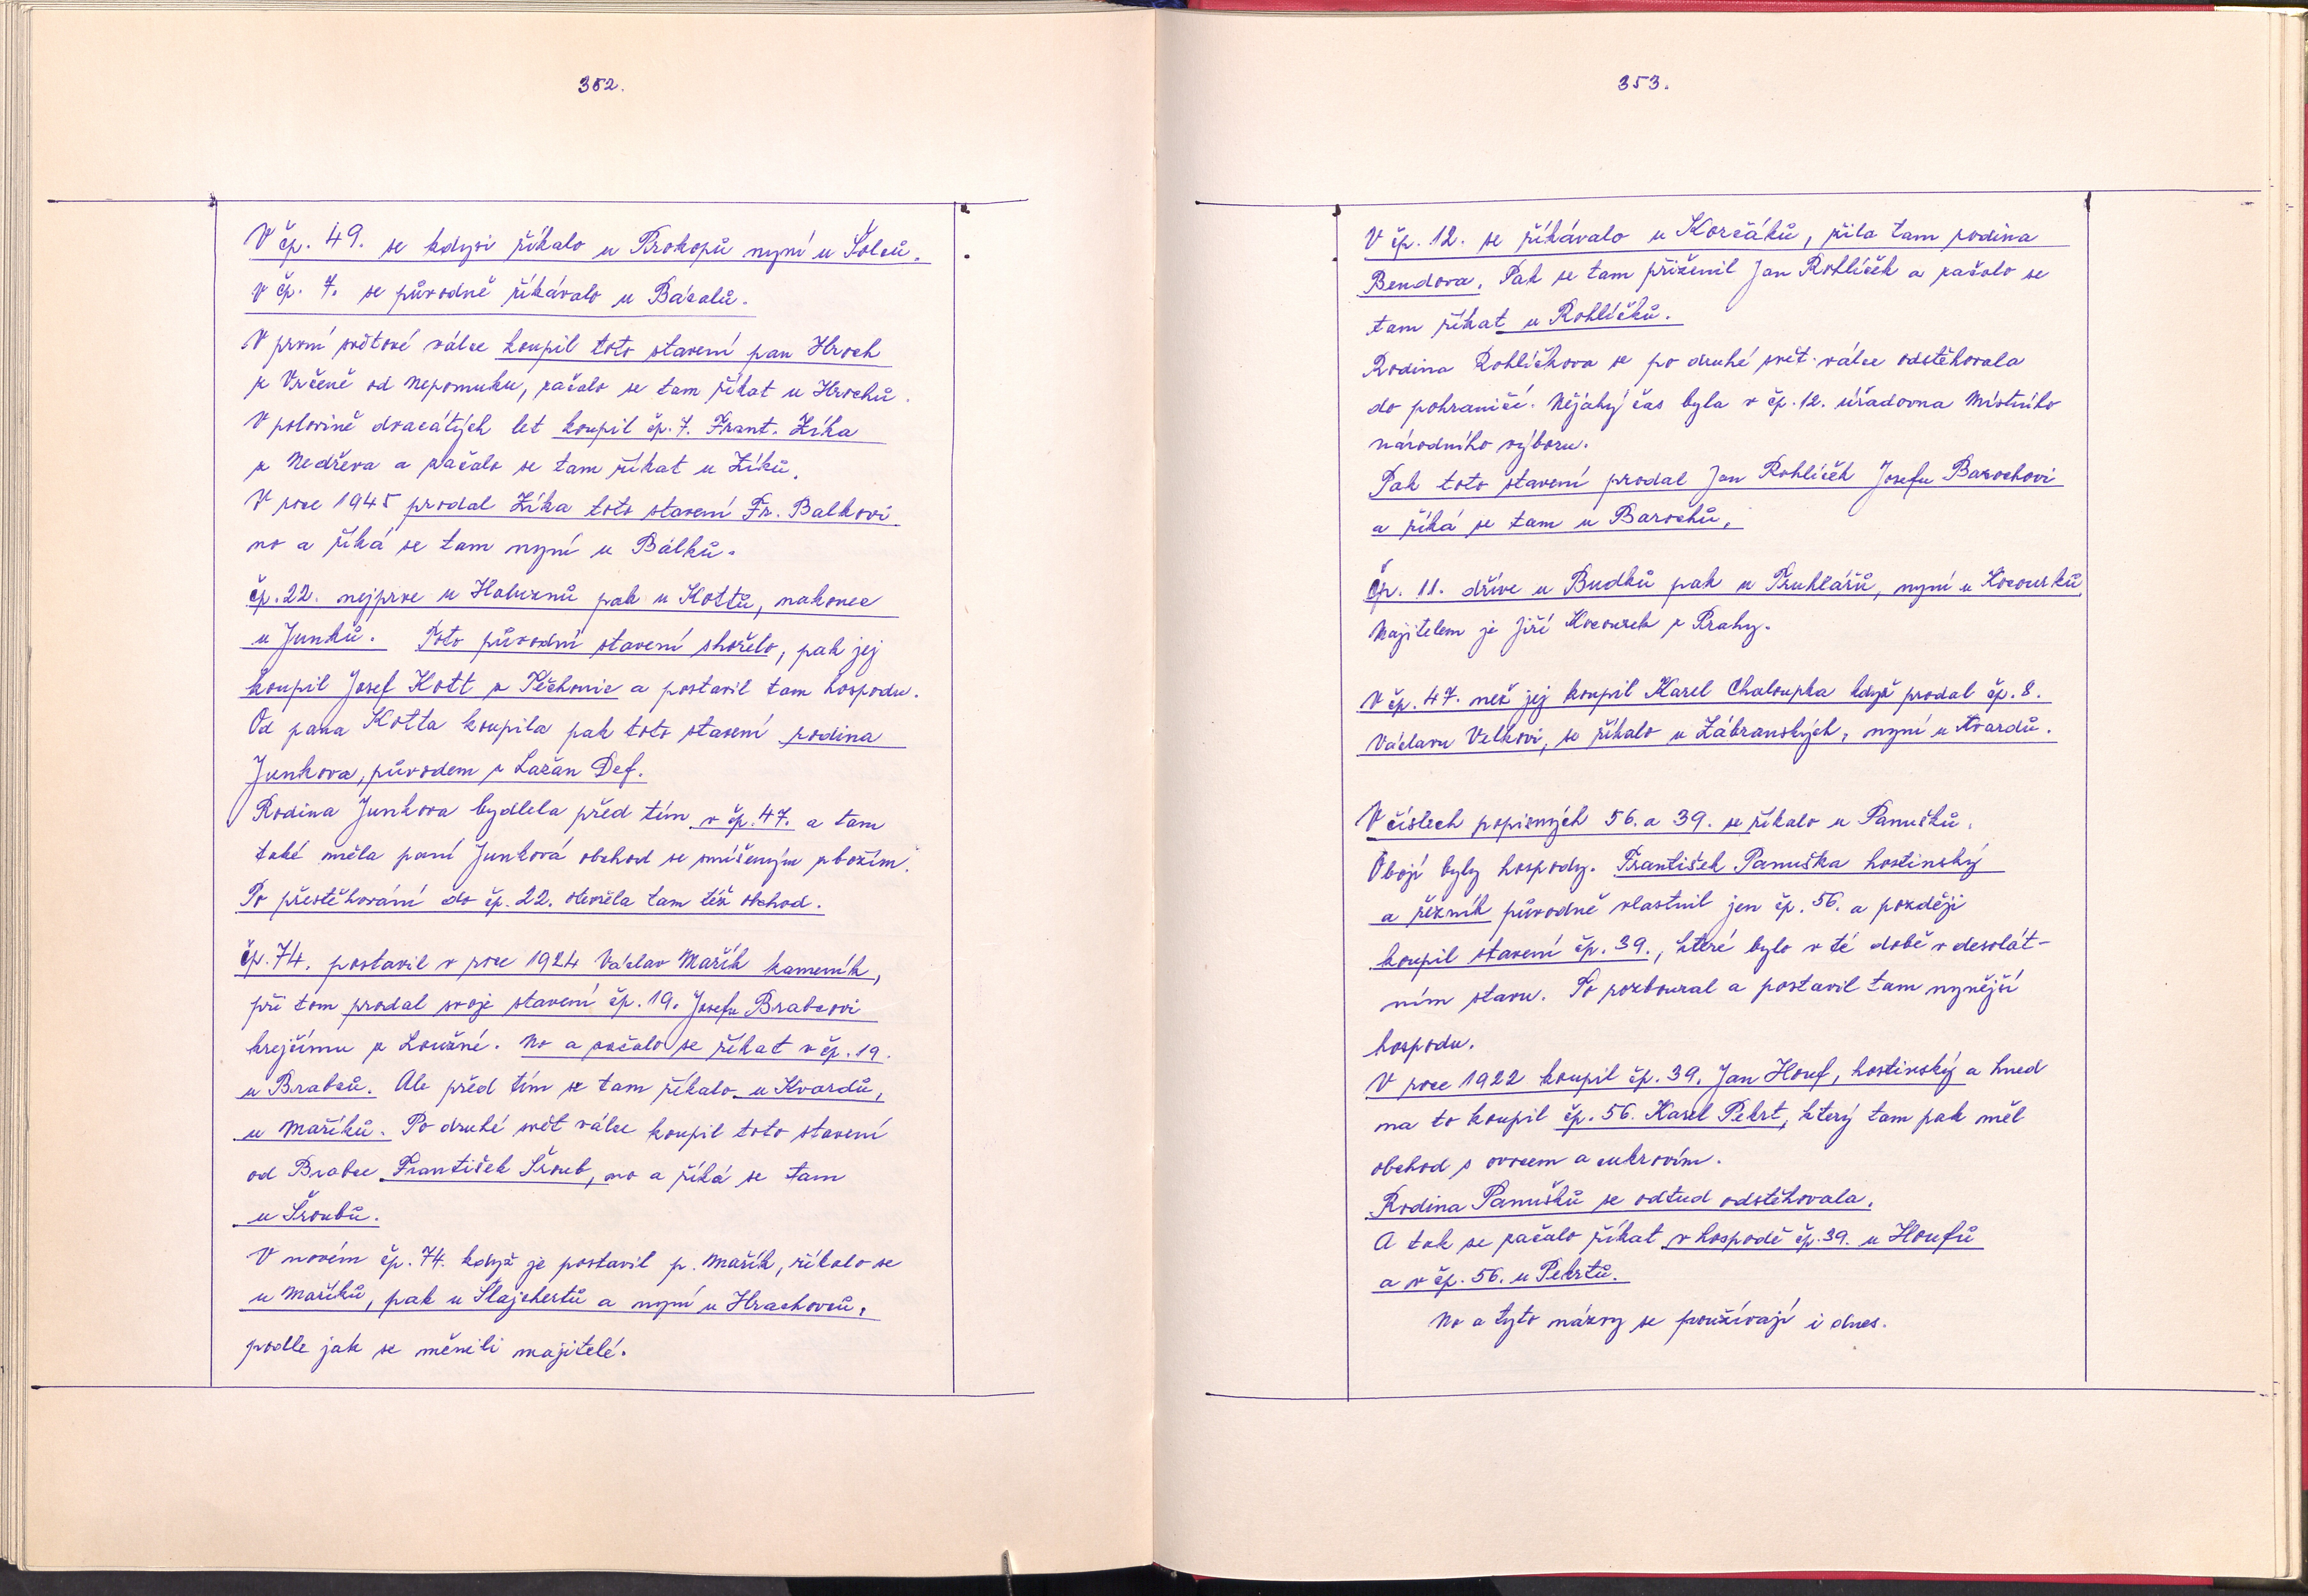 352.
V čp. 49. se kdysi říkalo u Prokopů nyní u Šolců.
v čp. 7. se původně říkávalo u Bácalů.
V první světové válce koupil toto stavení pan Hroch
z Vrčeně od Nepomuku, začalo se tam říkat u Hrochů.
V polovině dvacátých let koupil čp. 7. Frant. Zíka
z Nedřeva a začalo se tam říkat u Zíků.
V roce 1945 prodal Zíka toto stavení Fr. Balkovi
no a říká se tam nyní u Bálků.
čp. 22. nejprve u Haluznů pak u Kottů, nakonec
u Junků. Toto původní stavení shořelo, pak jej
koupil Josef Kott z Těchonic a postavil tam hospodu.
Od pana Kotta koupila pak toto stavení rodina
Junkova, původem z Lažan Def.
Rodina Junkova bydlela před tím v čp. 47. a tam
také měla paní Junková obchod se smíšeným zbožím.
Po přestěhování do čp. 22. otevřela tam též obchod.
čp. 74. postavil v roce 1924 Václav Mařík kameník,
při tom prodal svoje stavení čp. 19. Josefu Brabcovi
krejčímu z Loužné. No a začalo se říkat v čp. 19.
u Brabců. Ale před tím se tam říkalo u Kvardů,
u Maříků. Po druhé svět válce koupil toto stavení
od Brabce František Šroub, no a říká se tam
u Šroubů.
V novém čp. 74. když je postavil p. Mařík, říkalo se
u Maříků, pak u Šlajchertů a nyní u Hrachovců,
podle jak se měnili majitelé.
353.
V čp. 12. se říkávalo u Korčáků, žila tam rodina
Bendova. Pak se tam přiženil Jan Rohlíček a začalo se
tam říkat u Rohlíčků.
Rodina Rohlíčkova se po druhé svět. válce odstěhovala
do pohraničí. Nějaký čas byla v čp. 12. úřadovna Místního
národního výboru.
Pak toto stavení prodal Jan Rohlíček Josefu Barochovi
a říká se tam u Barochů.
Čp. 11. dříve u Budků pak u Truhlářů, nyní u Kocourků.
Majitelem je Jiří Kocourek z Prahy.
V čp. 47. než jej koupil Karel Chaloupka když prodal čp. 8.
Václavu Velkovi, se říkalo u Zábranských, nyní u Kvardů.
V číslech popisných 56. a 39. se říkalo u Panušků.
Obojí byly hospody. František Panuška hostinský
a řezník původně vlastnil jen čp. 56. a později
koupil stavení čp. 39., které bylo v té době v desolát-
ním stavu. To rozboural a postavil tam nynější
hospodu.
V roce 1922 koupil čp. 39. Jan Houf, hostinský a hned
na to koupil čp. 56. Karel Pekrt, který tam pak měl
obchod s ovocem a cukrovím.
Rodina Panušků se odtud odstěhovala.
A tak se začalo říkat v hospodě čp. 39. u Houfů
a v čp. 56. u Pekrtů.
No a tyto názvy se používají i dnes.